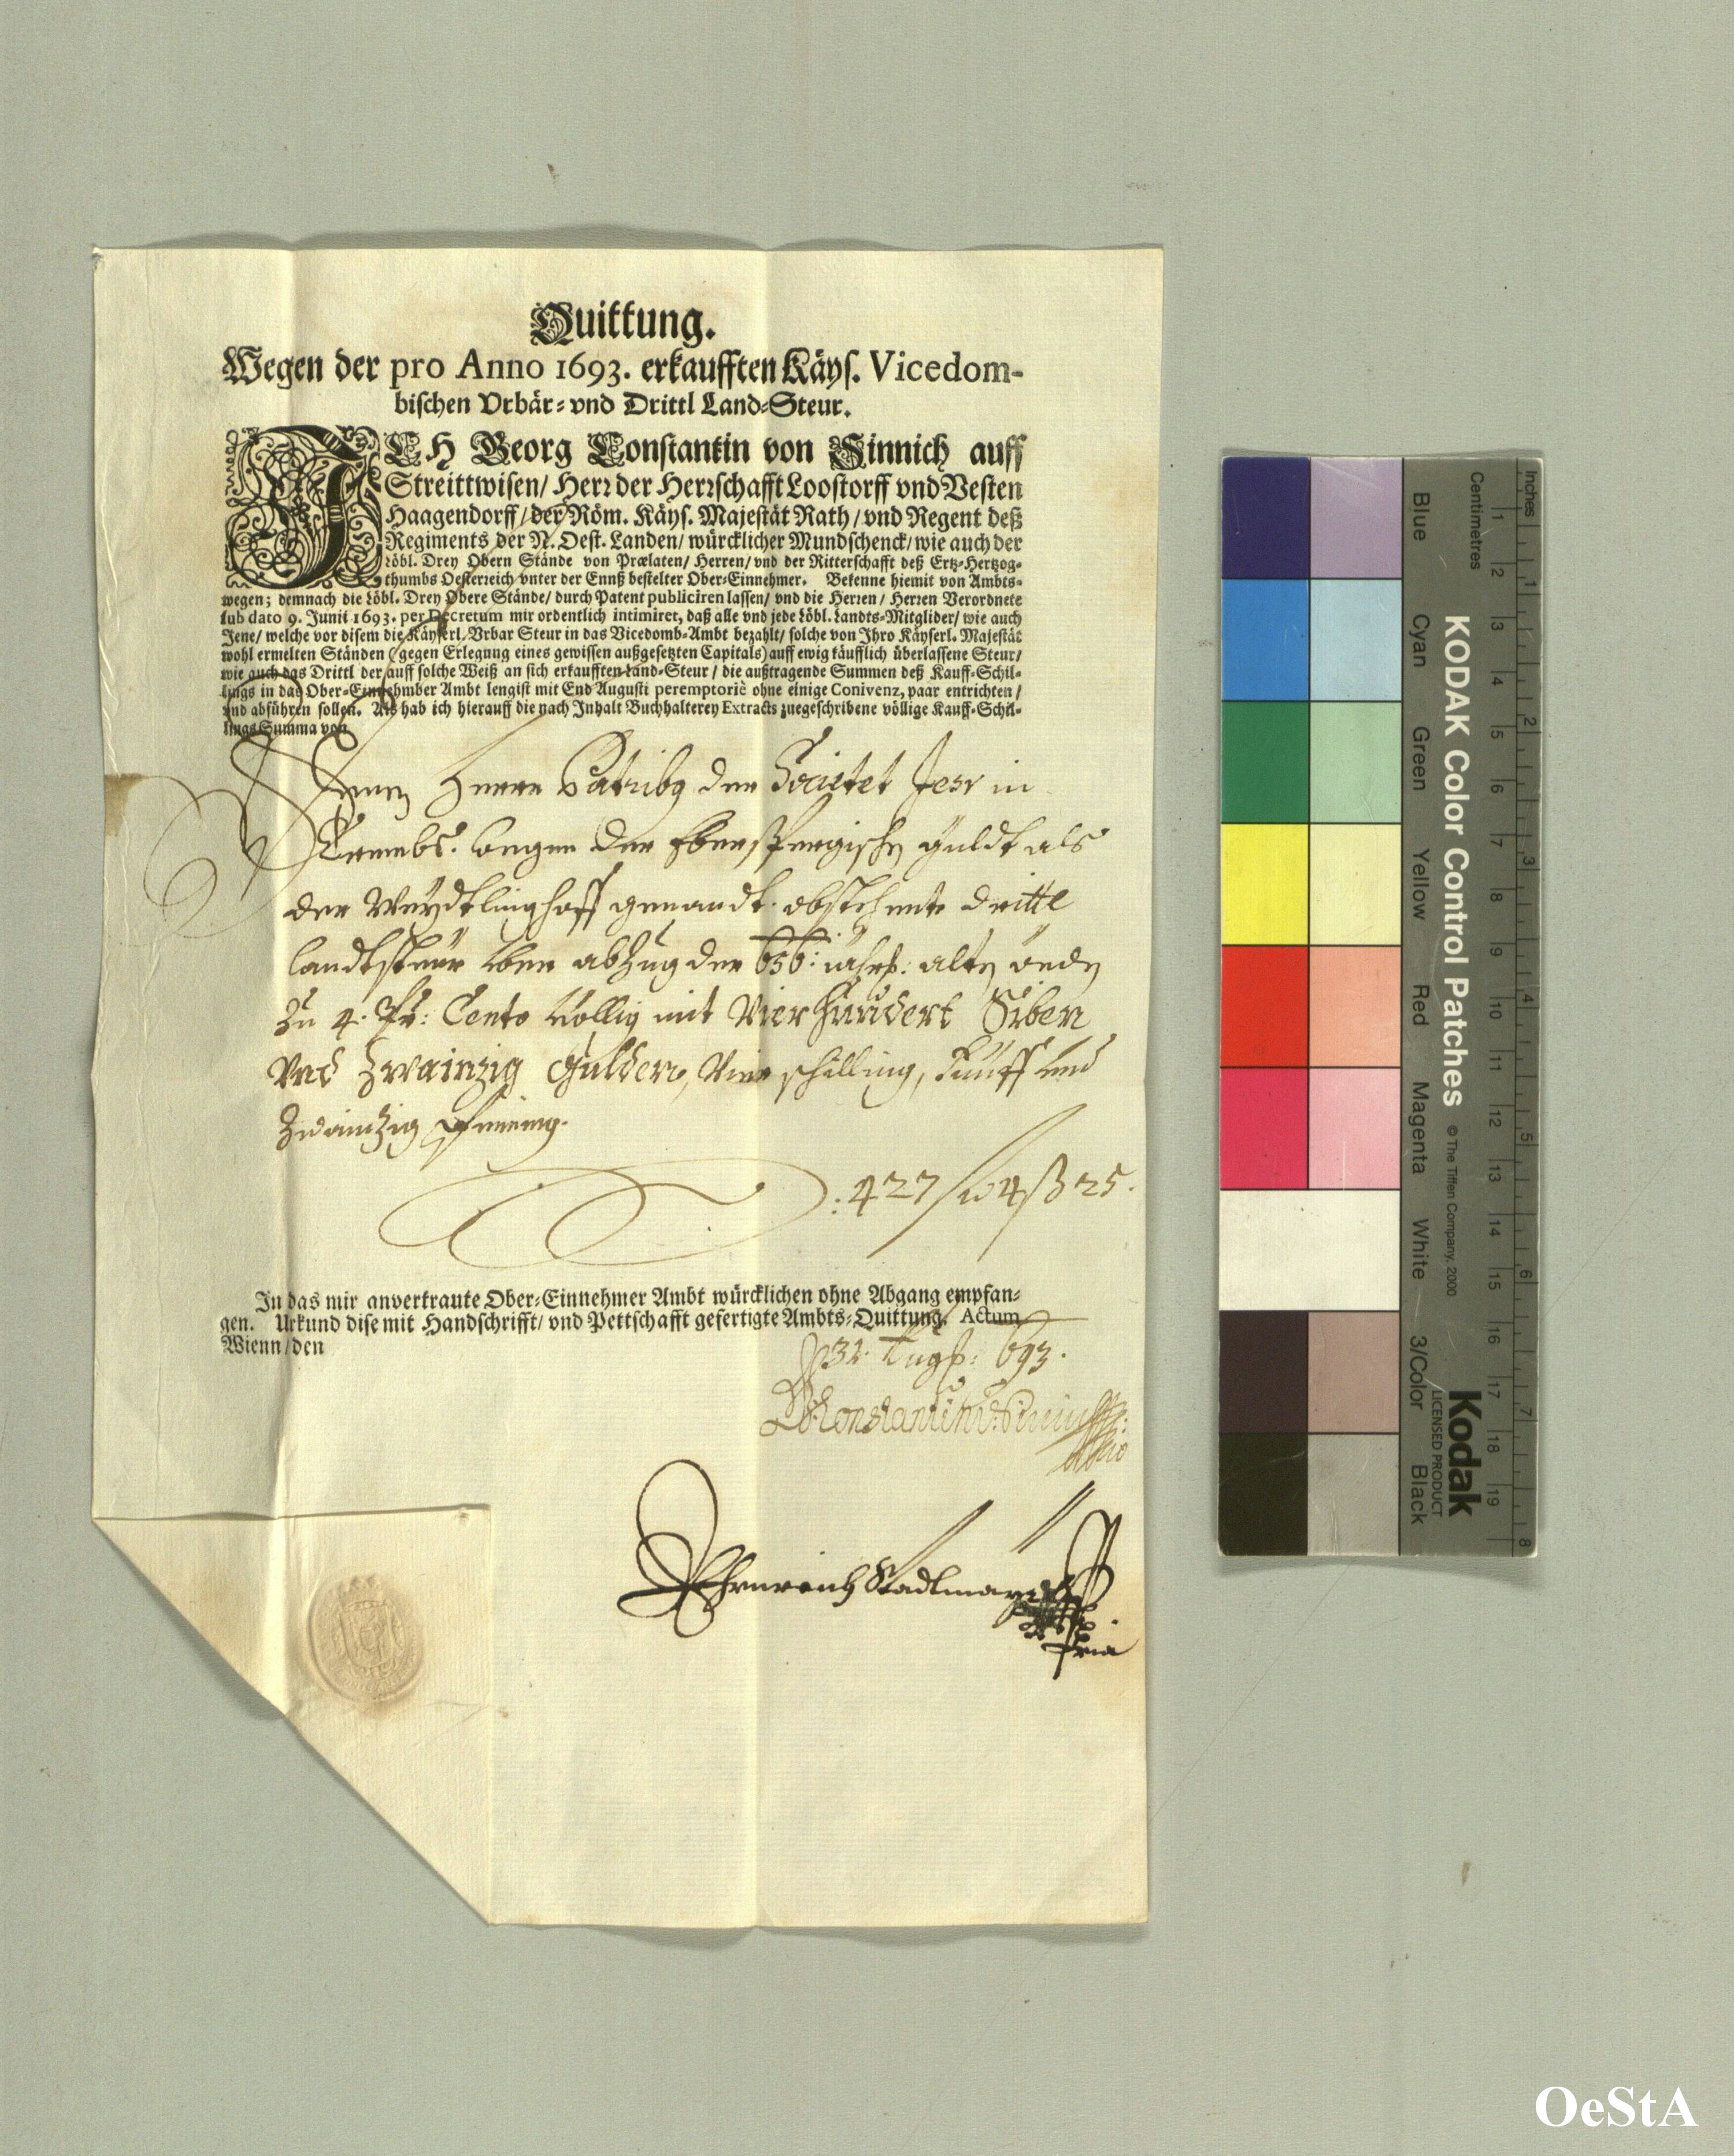 Quittung.
Wegen der pro Anno 1693. erkaufften Käys. Vicedom-
bischen Vrbär- vnd Drittl Land-Steur.
ICH Georg Constantin von Sinnich auff
Streittwisen/ Herr der Herrschafft Loostorff vnd Vesten
Haagendorff/ der Röm. Käys. Majestät Rath/ vnd Regent deß
Regiments der N. Oest. Landen/ würcklicher Mundschenck/ wie auch der
Löbl. Drey Obern Stände von Prælaten/ Herren/ vnd der Ritterschafft deß Ertz-Hertzog-
thumbs Oesterreich vnter der Ennß bestelter Ober-Einnehmer. Bekenne hiemit von Ambts-
wegen; demnach die Löbl. Drey Obere Stände/ durch Patent publiciren lassen/ vnd die Herren/ Herren Verordnete
sub dato 9. Junii 1693. per Decretum mir ordentlich intimiret, daß alle vnd jede Löbl. Landts-Mitglider/ wie auch
Jene/ welche vor disem die Käyserl. Vrbar Steur in das Vicedomb-Ambt bezahlt/ solche von Ihro Käyserl. Majestät
wohl ermelten Ständen (gegen Erlegung eines gewissen außgesetzten Capitals) auff ewig käufflich überlassene Steur/
wie auch das Drittl der auff solche Weiß an sich erkaufften Land-Steur/ die außtragende Summen deß Kauff-Schil-
lings in das Ober-Einnehmber Ambt lengist mit End Augusti peremptoriè ohne einige Conivenz, paar entrichten/
vnd abführen sollen. Als hab ich hierauff die nach Inhalt Buchhalterey Extracts zuegeschribene völlige Kauff-Schil-
lings Summa von
Denen Herrn Patribg der Societet Jesv in
Crembs. wegen der Eberspergischen güldt als
der Weydtlinghoff genandt. obstehente dritte
landtsteür yber abzug der 656: iährl: alten öeden
zu 4. Pr: Cento völlig mit Vierhundert Siben
Vnd Zwainzig Gulden, Vier schilling, Fünff vnd
Zwainzig Pfening.
: 427 f 4 ß 25.
In das mir anvertraute Ober-Einnehmer Ambt würcklichen ohne Abgang empfan-
gen. Urkund dise mit Handschrifft/ vnd Pettschafft gefertigte Ambts-Quittung. Actum
Wienn/ den
31. Augs: 693.
Ehrnreich Stadlmayr
pria
KODAK Color Control Patches © The Tiffen Company, 2000 Kodak
LICENSED PRODUCT
Blue Cyan Green Yellow Red Magenta White 3/Color Black
Inches 1 2 3 4 5 6 7 8
Centimetres 1 2 3 4 5 6 7 8 9 10 11 12 13 14 15 16 17 18 19
OeStA